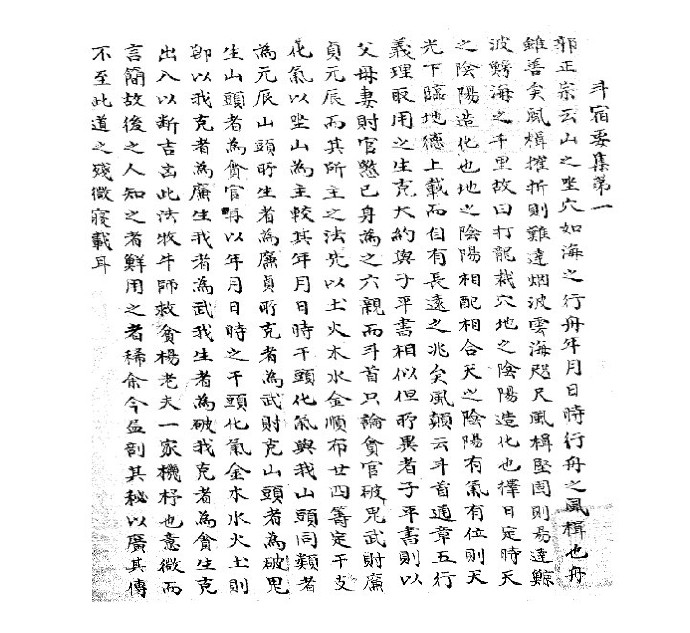 斗宿要集第一
郭正宗云山之坐穴如海之行舟年月日時行舟之風楫也舟
雖善矣風楫摧折則難達烟波雲海咫尺風楫堅固則易達鯨
波鰐海之千里故曰打龍裁穴地之陰陽造化也擇日定時天
之陰陽造化也地之陰陽相配相合天之陰陽有氣有位則天
光下臨地德上載而自有長遠之兆矣風顛云斗首通章五行
義理取用之生克大約與子平書相似但所異者子平書則以
父母妻財官愍已身為之六親而斗首只論貪官破鬼武財廉
貞元辰而其所主之法先以土火木水金順布廿四籌定干支
化氣以坐山為主較其年月日時干頭化氣與我山頭同類者
為元辰山頭所生者為廉貞所克者為武財克山頭者為破鬼
生山頭者為貪官以年月日時之干頭化氣金木水火土則
卽以我克者為廉生我者為武我生者為破我克者為貪生克
出入以断吉凶此法牧牛師救貧楊老夫一家機杼也意微而
言簡故後之人知之者鮮用之者稀余今益剖其秘以廣其傳
不至此道之殘微寢載耳